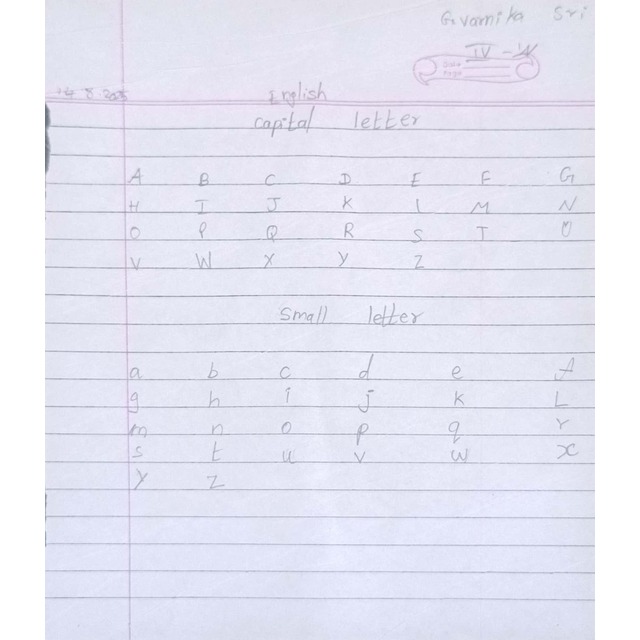 Gvarnika Sri
IV - 'A'
Date
Page
English
Capital letter
A B C D E F G
H I J K l M N
O P Q R S T U
V W X Y Z
Small letter
a b c d e f
g h i j k L
m n o p q r
s t u v w x
y z